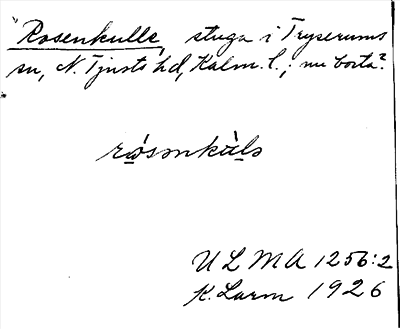 "Rosenkulle, stuga i Tryserums
sn, N. Tjusts hd, Kalm. l.; nu borta?
ULMA 1256:2
K. Larm 1926